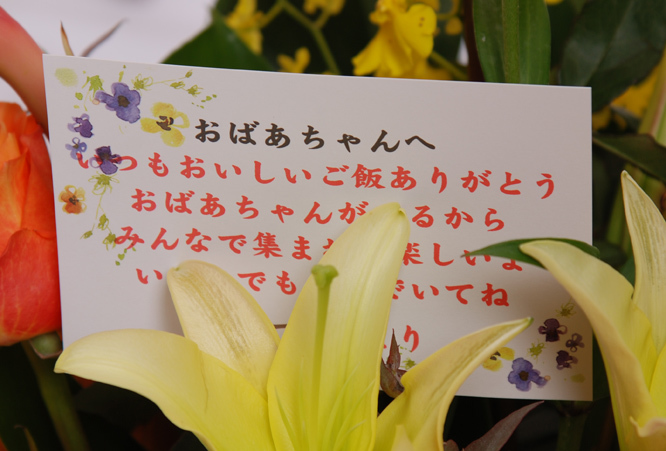 おばあちゃんへ
いつもおいしいご飯ありがとう
おばあちゃんが るから
みんなで集ま 楽しいよ
い でも でいてね
り